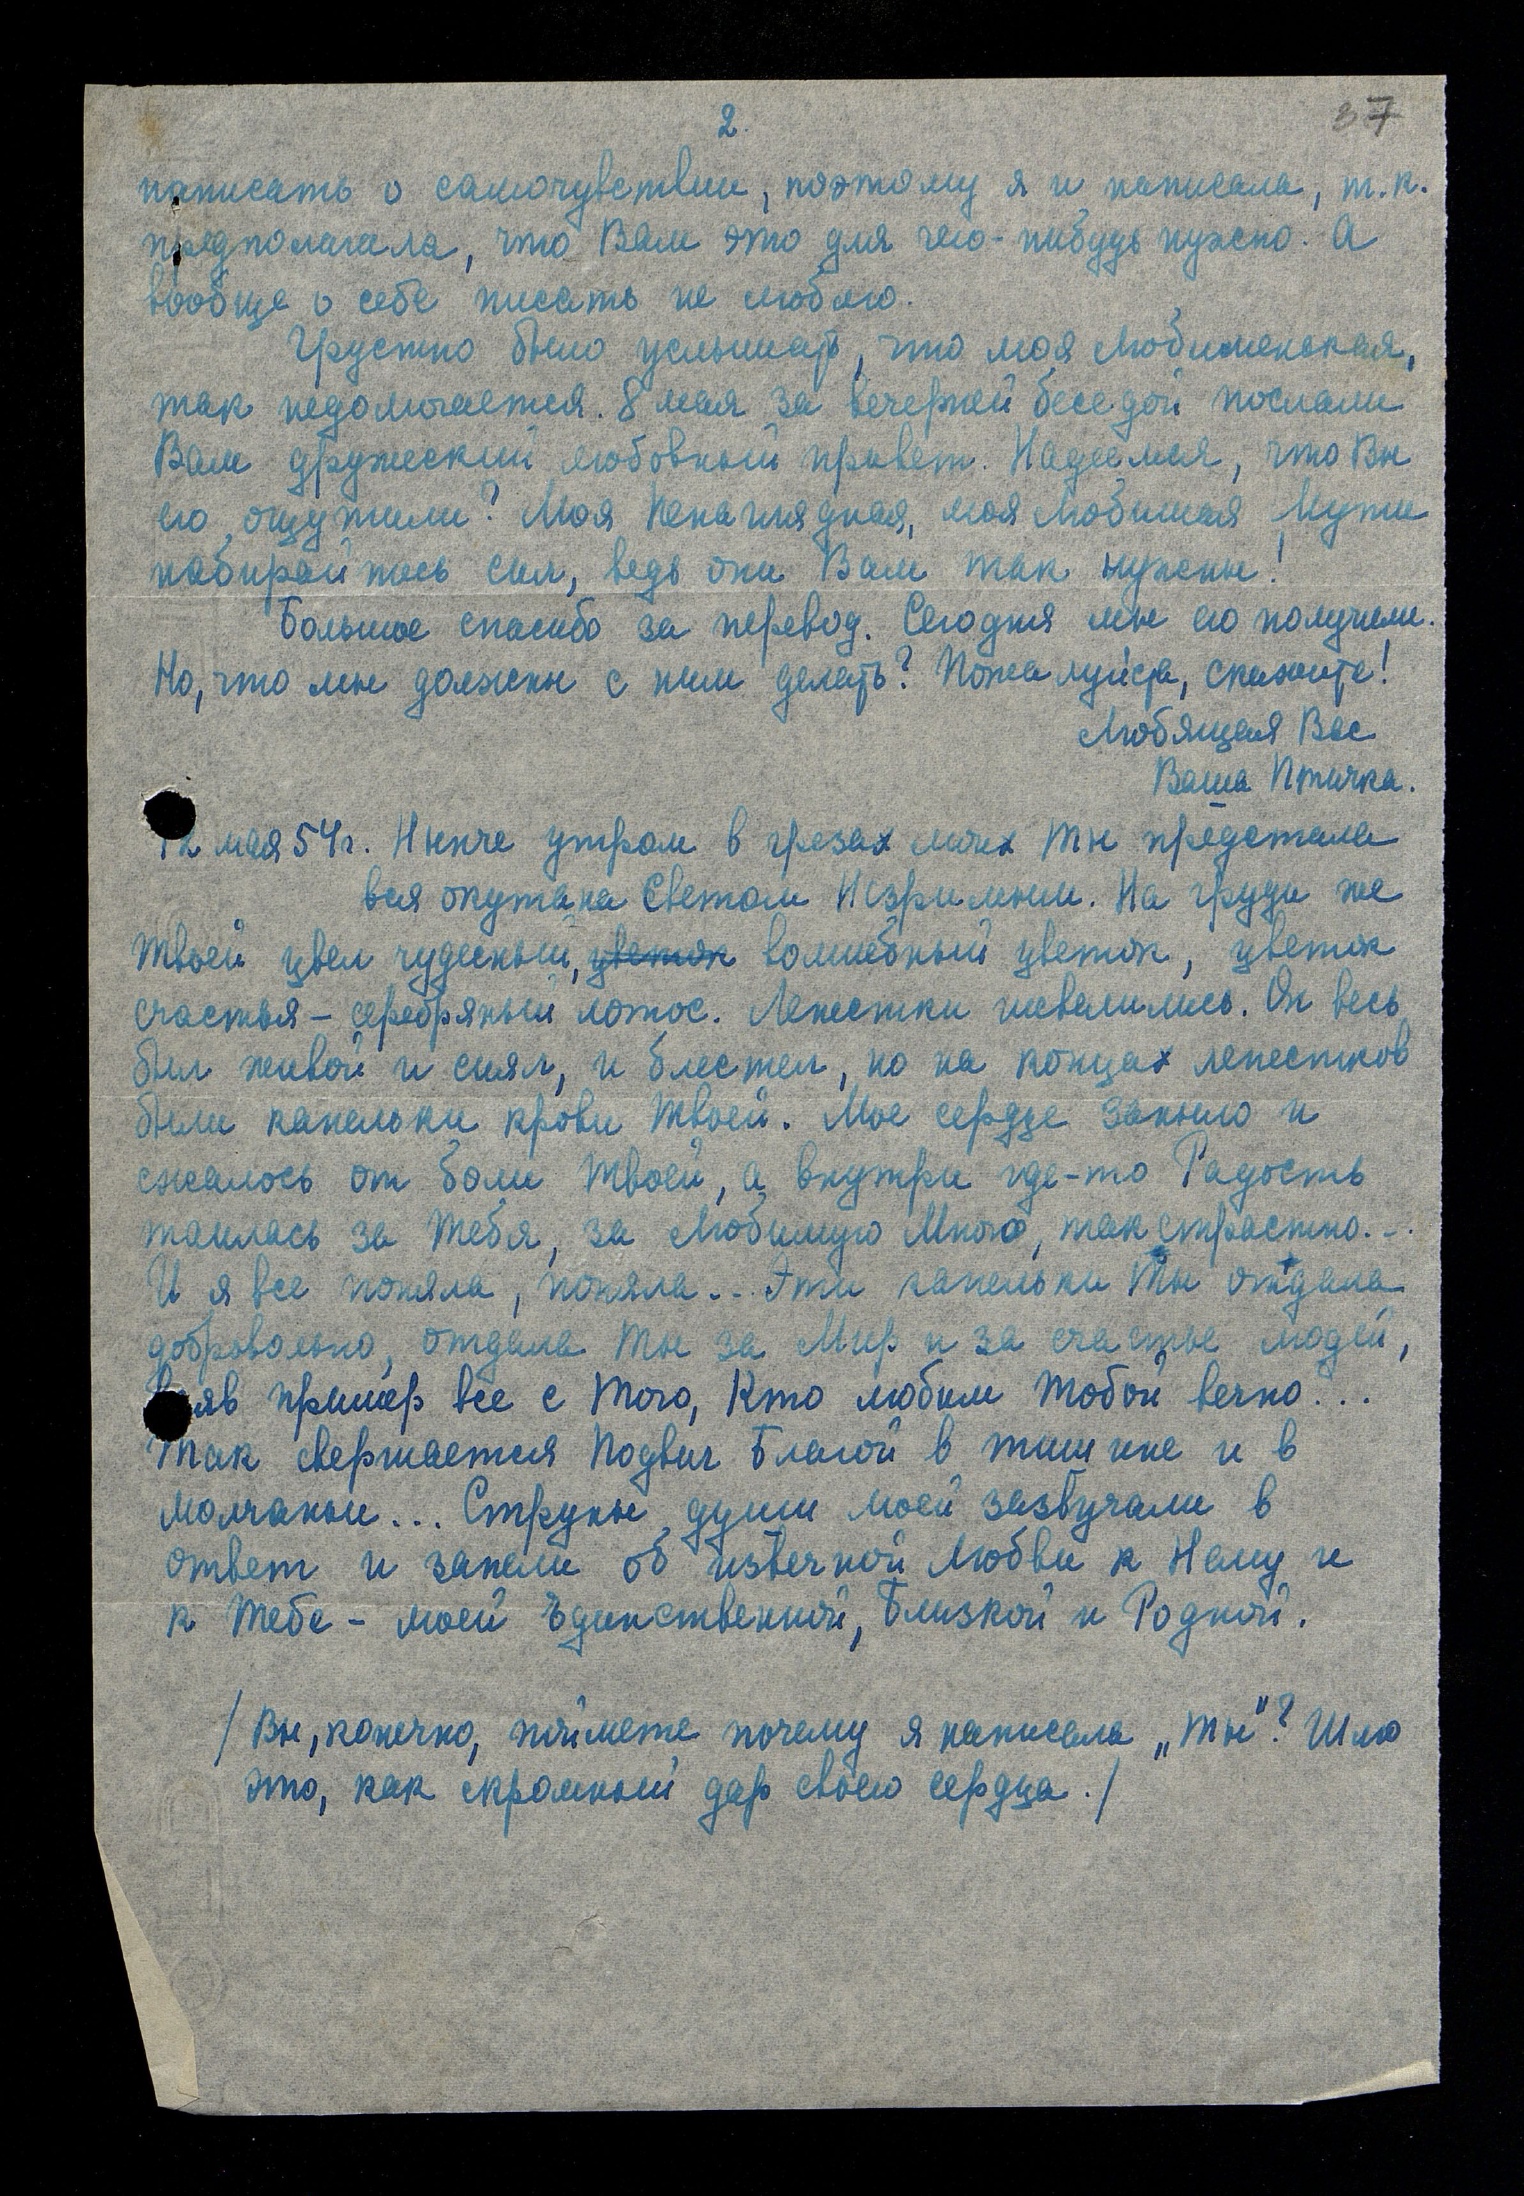 2.
37
написать о самочувствии, поэтому я и написала, т.к.
предполагала, что Вам это для чего-нибудь нужно. А
вообще о себе писать не люблю.
Грустно было услышать, что моя Любименькая,
так недомогается. 8 мая за вечерней беседой послали
Вам дружеский любовный привет. Надеемся, что Вы
его ощутили? Моя Ненаглядная, моя Любимая Мути
набирайтесь сил, ведь они Вам так нужны!
Большое спасибо за перевод. Сегодня мы его получили.
Но, что мы должны с ним делать? Пожалуйста, скажите!
Любящая Вас
Ваша Птичка.
12 мая 54 г. Нынче утром в грезах моих Ты предстала
вся окутана Светом Незримым. На груди же
Твоей цвел чудесный, цветок волшебный цветок, цветок
счастья – серебряный лотос. Лепестки шевелились. Он весь
был живой и сиял, и блестел, но на концах лепестков
были капельки крови Твоей. Мое сердце заныло и
сжалось от боли Твоей, а внутри где-то Радость
таилась за Тебя, за Любимую Мною, так страстно...
И я все поняла, поняла... Эти капельки Ты отдала
добровольно, отдала Ты за Мир и за счастье людей,
взяв пример все с Того, Кто любим Тобой вечно...
Так свершается Подвиг Благой в тишине и в
молчаньи... Струны души моей зазвучали в
ответ и запели об извечной Любви к Нему и
к Тебе – моей Единственной, Близкой и Родной.
/ Вы, конечно, поймете почему я написала „Ты"? Шлю
это, как скромный дар своего сердца. /